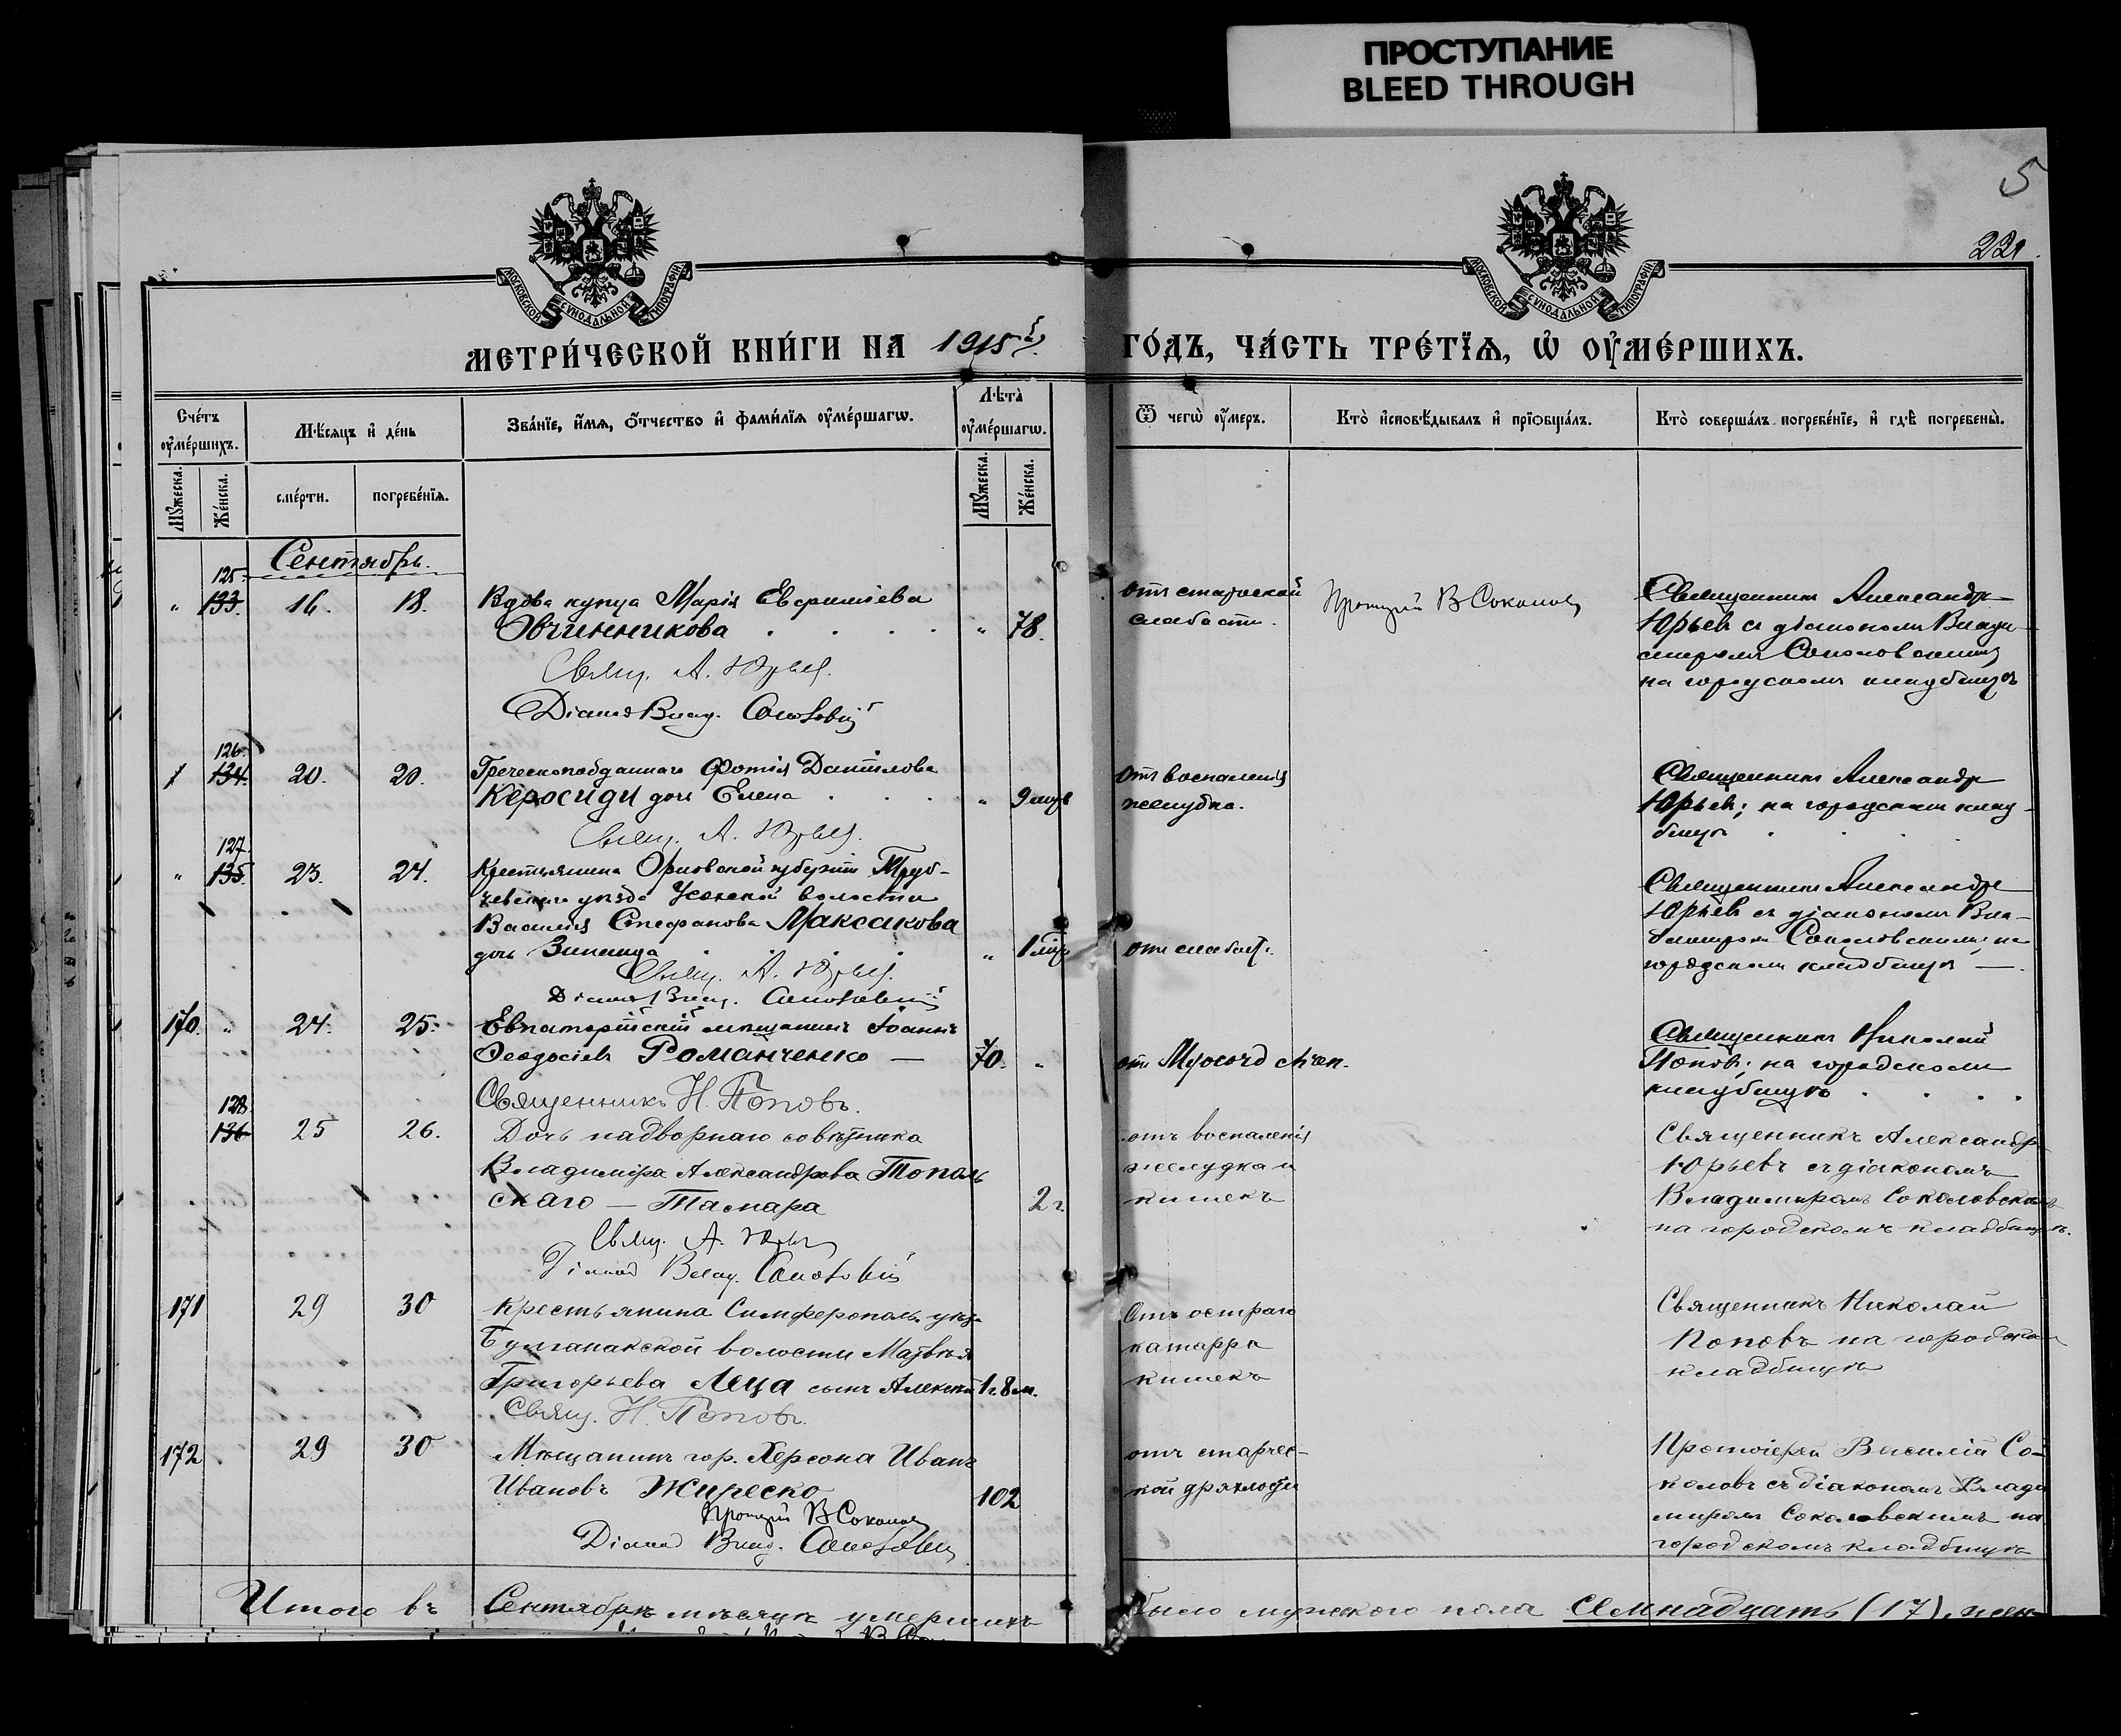 ПРОСТУПАНИЕ
BLEED THROUGH
5
221.
МОСКОВСКОЙ СѴНОДАЛЬНОЙ ТИПОГРАФІИ
МОСКОВСКОЙ СѴНОДАЛЬНОЙ ТИПОГРАФІИ
МЕТРИ́ЧЕСКОЙ КНИ́ГИ НА 1915й ГО́ДЪ, ЧА́СТЬ ТРЕ́ТЇѦ, Ѡ҆ ОУ҆МЕ́РШИХЪ.
Сче́тъ оу҆ме́ршихъ.
Мѣ́сяцъ и҆ де́нь
Зва́нїе, и҆́мѧ, ѻ҆́тчество и҆ фами́лїѧ оу҆ме́ршагѡ.
Лѣ́та оу҆ме́ршагѡ.
Ѿ чегѡ̀ оу҆́меръ.
Кто̀ и҆сповѣ́дывалъ и҆ прїѡбща́лъ.
Кто̀ соверша́лъ погребе́нїе, и҆ гдѣ̀ погребены̀.
Мꙋ́жеска.
Же́нска.
сме́рти.
погребе́нїѧ.
Мꙋ́жеска.
Же́нска.
Сентябрь.
125.
" 133. 16. 18. Вдова купца Марія Евфиміева
Овчинникова . . . . " 78.
Свящ. А. Юрьев.
Діакон Влад. Соколовскій
отъ старческой
слабости.
Протоіерей В Соколов
Священникъ Александръ
Юрьевъ съ діакономъ Влади
миромъ Соколовскимъ
на городскомъ кладбищѣ
126.
1 134. 20. 20. Греческоподданнаго Фотія Даниилова
Керосиди дочь Елена . . . " 9 мцв
Свящ. А. Юрьев.
отъ воспаленія
желудка.
Священникъ Александръ
Юрьевъ; на городскомъ клад-
бищѣ . . .
127.
" 135. 23. 24. Крестьянина Орловской губерніи Труб-
чевскаго уѣзда Усохской волости
Василія Стефанова Максакова
дочь Зинаида . . . " 1 мѣс
Свящ. А. Юрьев.
Діакон Влад. Соколовскій
отъ слабост.
Священникъ Александръ
Юрьевъ съ діакономъ Вла-
димиромъ Соколовскимъ; на
городскомъ кладбищѣ —.
170. " 24. 25. Евпаторійскій мѣщанинъ Іоаннъ
Ѳеодосіевъ Романченко — 70. "
Священникъ Н. Поповъ.
отъ Myocard chron.
Священникъ Николай
Поповъ; на городскомъ
кладбищѣ . . . .
128
136 25 26. Дочь надворнаго совѣтника
Владиміра Александрова Тополь
скаго — Тамара 2 г.
Свящ. А. Юрьев
Діакон Влад. Соколовскій
отъ воспаленія
желудка и
кишекъ
Священникъ Александръ
Юрьевъ съ діакономъ
Владимиромъ Соколовскимъ
на городскомъ кладбищѣ.
171 29 30 Крестьянина Симферополь. уѣзд.
Булганакской волости Матвѣя
Григорьева Леца сынъ Алексѣй 1 г 8 м.
Свящ. Н. Поповъ.
Отъ остраго
катарра
кишекъ
Священникъ Николай
Поповъ на городском
кладбищѣ
172 29 30 Мѣщанинъ гор. Херсона Иванъ
Ивановъ Жиреско 102
Протоіерей В Соколов
Діакон Влад. Соколовскій
отъ старчес-
кой дряхлости
Протоіерей Василій Со-
коловъ съ діакономъ Влади
миромъ Соколовскимъ на
городскомъ кладбищѣ
Итого въ Сентябрѣ мѣсяцѣ умершихъ было мужского пола семнадцать (17), жен